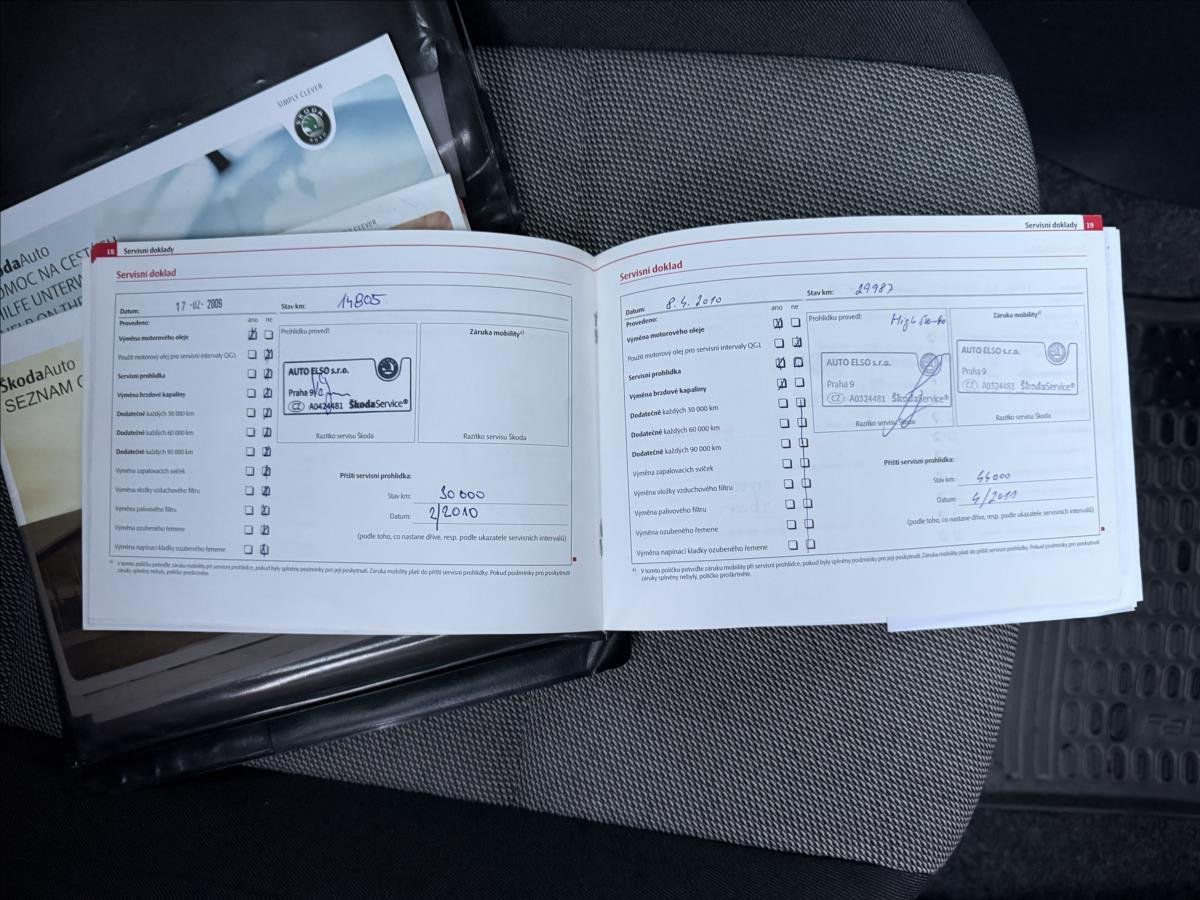 SIMPLY CLEVER
ŠKODA
AUTO
SIMPLY CLEVER
ŠkodaAuto
POMOC NA CESTÁCH
HILFE UNTERW
HELP ON THE
ŠkodaAuto
SEZNAM
18 Servisní doklady
Servisní doklad
Datum: 17 -02- 2009 Stav km: 14805
Provedeno: ano ne
Výměna motorového oleje
Použit motorový olej pro servisní intervaly QG1
Servisní prohlídka
Výměna brzdové kapaliny
Dodatečně každých 30 000 km
Dodatečně každých 60 000 km
Dodatečně každých 90 000 km
Výměna zapalovacích svíček
Výměna vložky vzduchového filtru
Výměna palivového filtru
Výměna ozubeného řemene
Výměna napínací kladky ozubeného řemene
Prohlídku provedl:
AUTO ELSO s.r.o.
Praha 9
CZ A0424481 ŠkodaService®
Razítko servisu Škoda
Záruka mobility a)
Razítko servisu Škoda
Příští servisní prohlídka:
Stav km: 30 000
Datum: 2/2010
(podle toho, co nastane dříve, resp. podle ukazatele servisních intervalů)
a) V tomto políčku potvrďte záruku mobility při servisní prohlídce, pokud byly splněny podmínky pro její poskytnutí. Záruka mobility platí do příští servisní prohlídky. Pokud podmínky pro poskytnutí
záruky splněny nebyly, políčko proškrtněte.
Servisní doklady 19
Servisní doklad
Datum: 8.4.2010 Stav km: 29987
Provedeno: ano ne
Výměna motorového oleje
Použit motorový olej pro servisní intervaly QG1
Servisní prohlídka
Výměna brzdové kapaliny
Dodatečně každých 30 000 km
Dodatečně každých 60 000 km
Dodatečně každých 90 000 km
Výměna zapalovacích svíček
Výměna vložky vzduchového filtru
Výměna palivového filtru
Výměna ozubeného řemene
Výměna napínací kladky ozubeného řemene
Prohlídku provedl:
AUTO ELSO s.r.o.
Praha 9
CZ A0324481 ŠkodaService®
Razítko servisu Škoda
Záruka mobility a)
AUTO ELSO s.r.o.
Praha 9
CZ A0324481 ŠkodaService®
Razítko servisu Škoda
Příští servisní prohlídka:
Stav km: 44000
Datum: 4/2011
(podle toho, co nastane dříve, resp. podle ukazatele servisních intervalů)
a) V tomto políčku potvrďte záruku mobility při servisní prohlídce, pokud byly splněny podmínky pro její poskytnutí. Záruka mobility platí do příští servisní prohlídky. Pokud podmínky pro poskytnutí
záruky splněny nebyly, políčko proškrtněte.